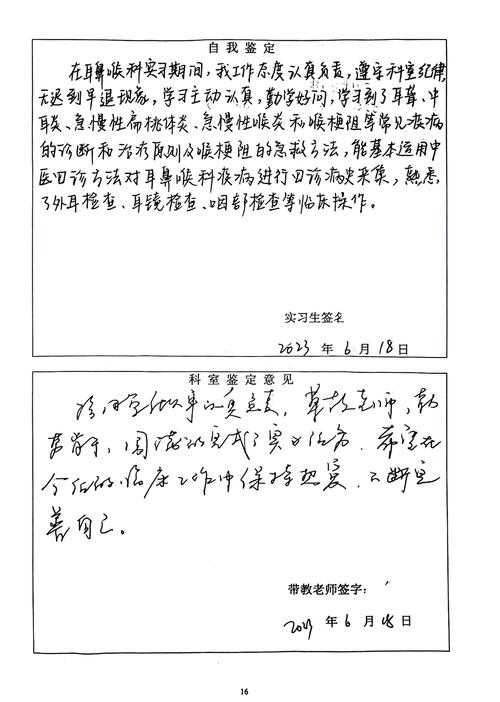 自我鉴定
在耳鼻喉科实习期间，我工作态度认真负责，遵守科室纪律，
无迟到早退现象，学习主动认真，勤学好问，学习到了耳聋、中
耳炎、急慢性扁桃体炎、急慢性喉炎和喉梗阻等常见疾病
的诊断和治疗原则及喉梗阻的急救方法，能基本运用中
医四诊方法对耳鼻喉科疾病进行四诊病史采集，熟悉
了外耳检查、耳镜检查、咽部检查等临床操作。
实习生签名
2023 年 6 月 18 日
科室鉴定意见
该同学做事认真负责，尊敬老师，勤
奋肯干，圆满的完成了实习任务。希望在
今后的临床工作中保持热爱，不断完
善自己。
带教老师签字：
2023 年 6 月 18 日
16